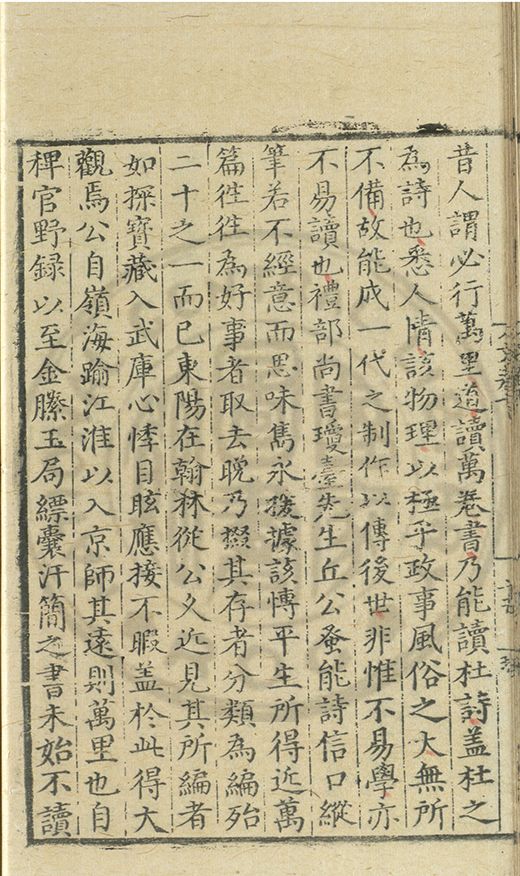 昔人謂必行萬里道讀萬卷書乃能讀杜詩盖杜之
為詩也悉人情該物理以極乎政事風俗之大無所
不備故能成一代之制作以傳後世非惟不易學亦
不易讀也禮部尚書瓊臺先生丘公蚤能詩信口縱
筆若不經意而思味雋永援據該愽平生所得近萬
篇徃徃為好事者取去晚乃掇其存者分類為編殆
二十之一而已東陽在翰林從公久近見其所編者
如探寳藏入武庫心悸目眩應接不暇盖於此得大
觀焉公自嶺海踰江淮以入京師其遠則萬里也自
稗官野録以至金縢玉局縹囊汗簡之書未始不讀